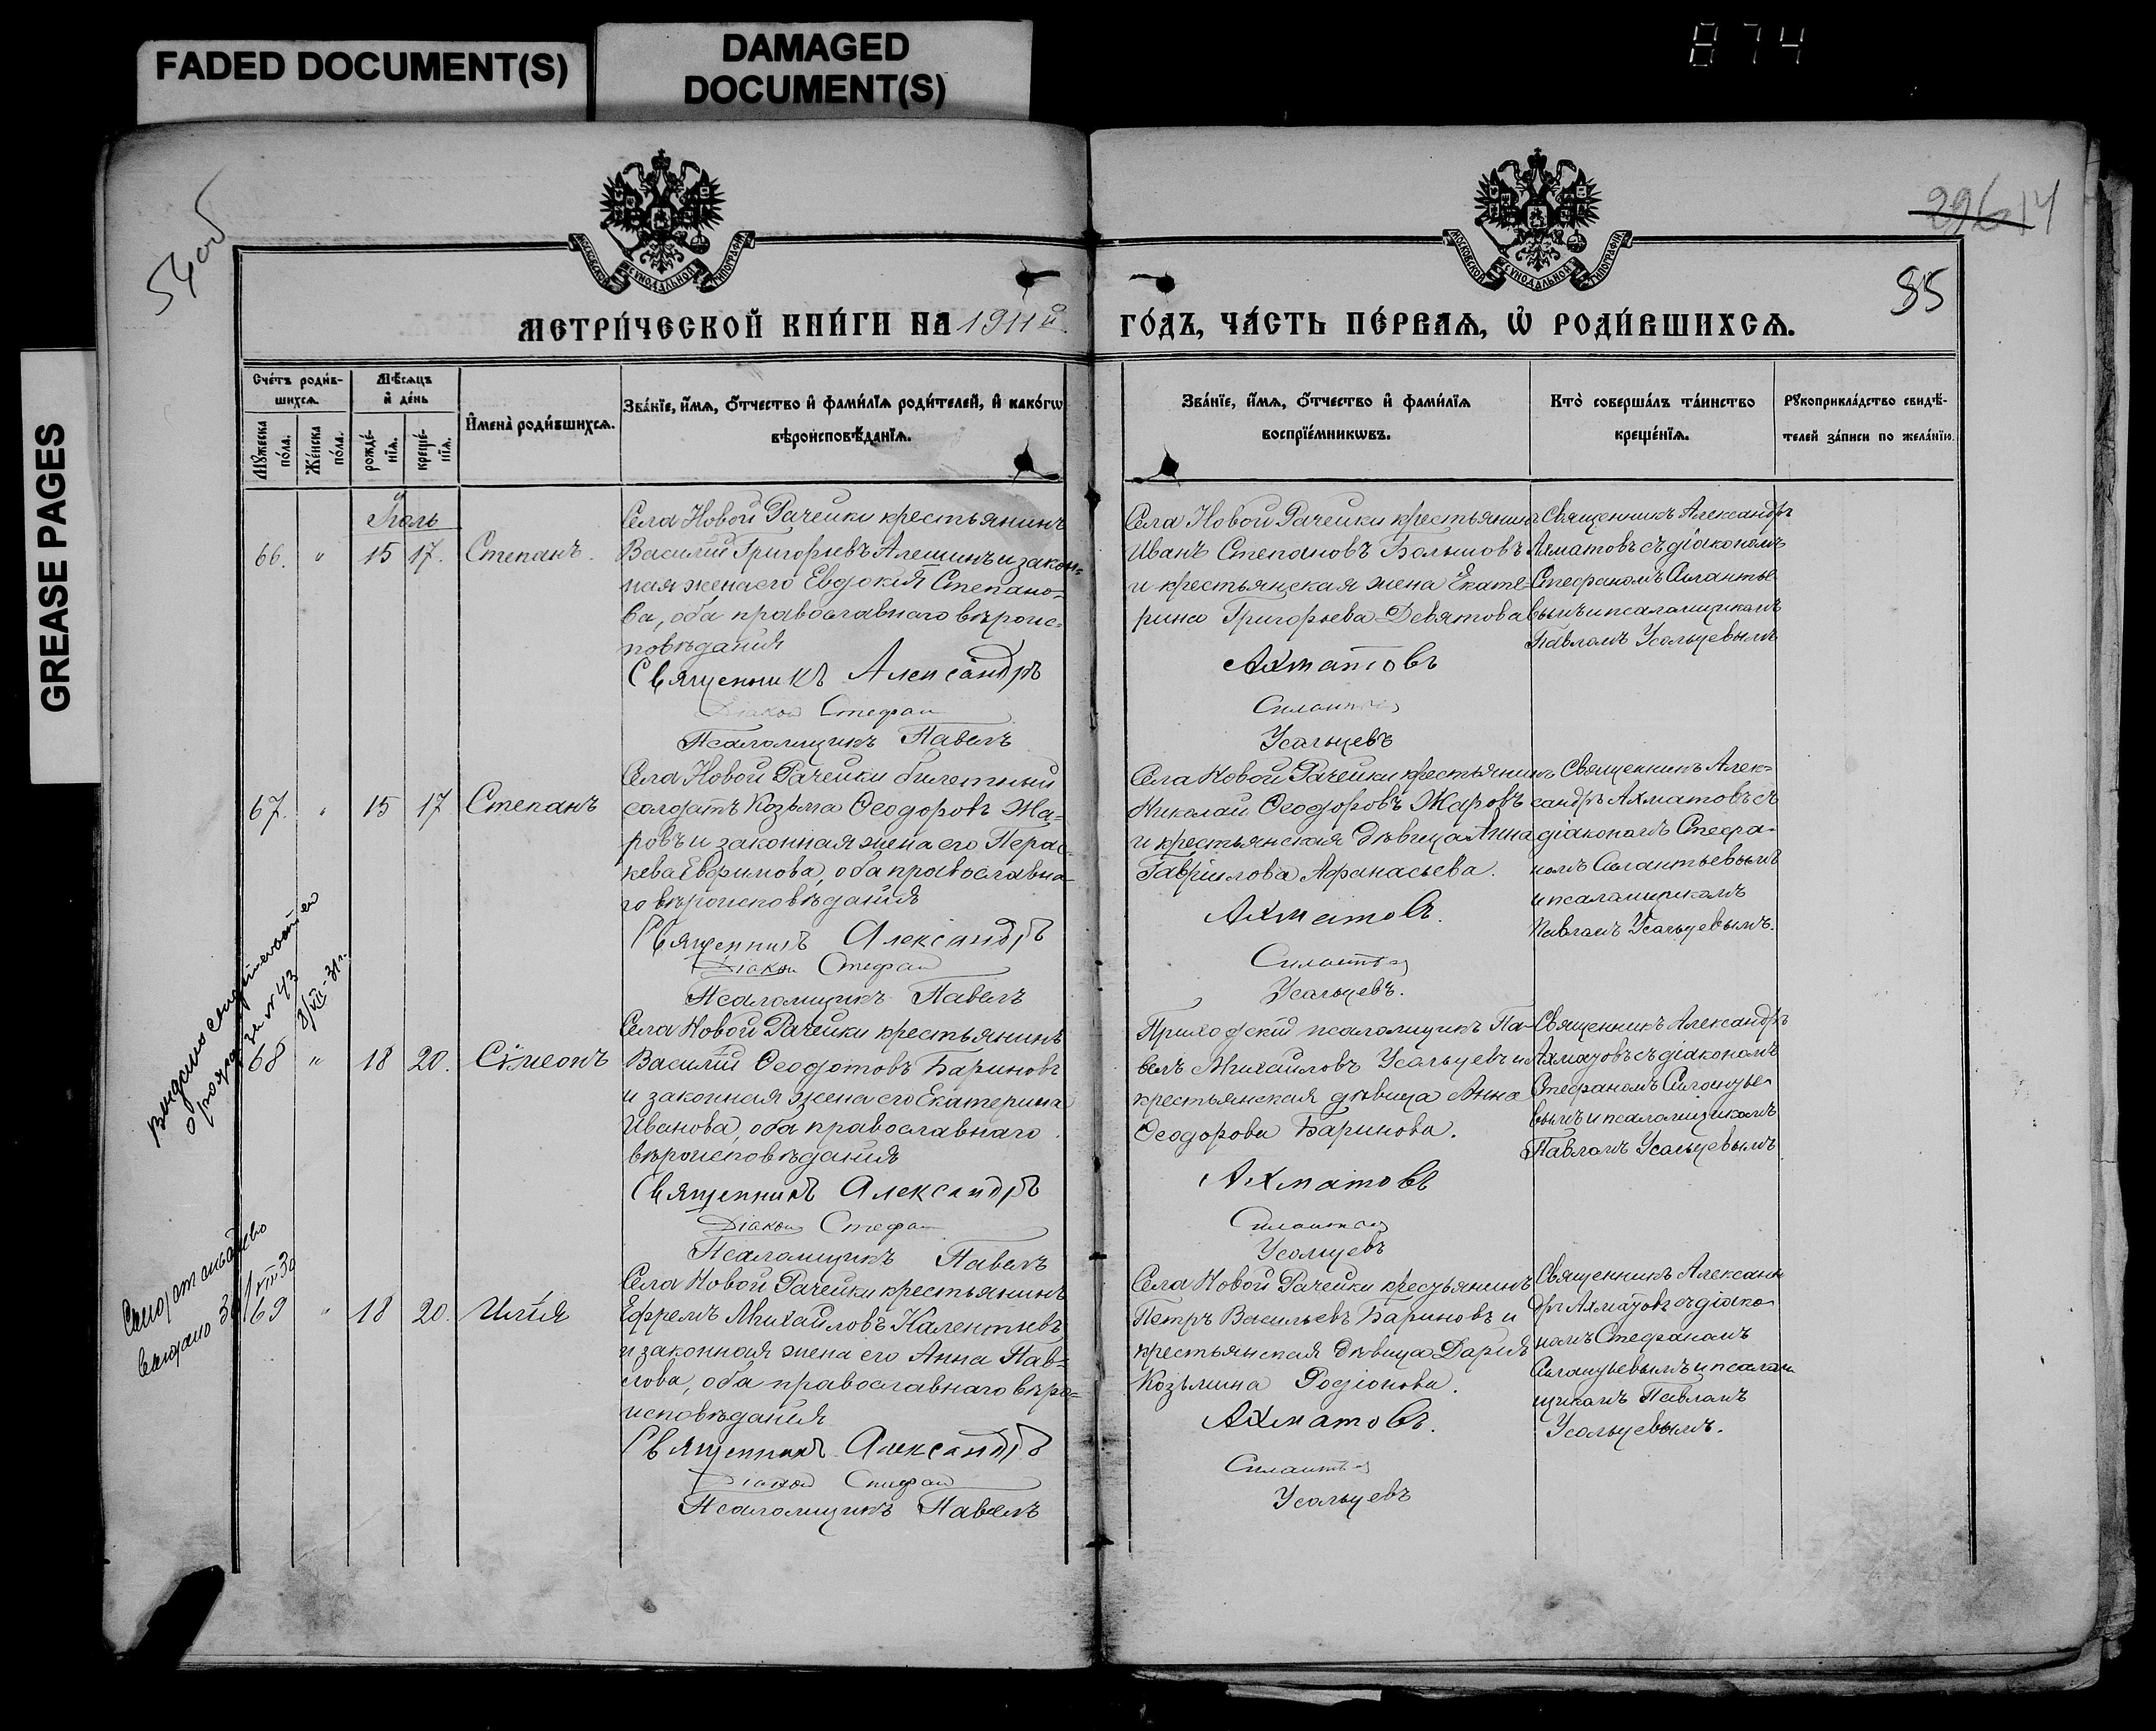 FADED DOCUMENT(S)
DAMAGED
DOCUMENT(S)
874
GREASE PAGES
54об
226 14
85
МОСКОВСКОЙ СѴНОДАЛЬНОЙ ТИПОГРАФІИ
МОСКОВСКОЙ СѴНОДАЛЬНОЙ ТИПОГРАФІИ
МЕТРИ́ЧЕСКОЙ КНИ́ГИ НА 1911й
ГО́ДЪ, ЧА́СТЬ ПЕ́РВАѦ, Ѽ РОДИ́ВШИХСѦ.
Сче́тъ роди́в-
шихсѧ.
Мѣ́сѧцъ
и де́нь
Мꙋ́жеска по́ла.
Же́нска по́ла.
рожде́-
нїѧ.
креще́-
нїѧ.
И҆мена̀ роди́вшихсѧ.
Зва́нїе, и҆́мѧ, ѻ҆́тчество и҆ фами́лїѧ роди́телей, и҆ како́гѡ
вѣроисповѣ́данїѧ.
Зва́нїе, и҆́мѧ, ѻ҆́тчество и҆ фами́лїѧ
воспрїе́мникѡвъ.
Кто̀ соверша́лъ та́инство
креще́нїѧ.
Рꙋкоприкла́дство свидѣ́-
телей за́писи по жела́нїю.
Іюль
66. " 15 17. Степанъ.
Села Новой Рачейки крестьянинъ
Василій Григорьевъ Алешинъ и закон=
ная жена его Евдокія Степано=
ва, оба православнаго вѣроис=
повѣданія
Священникъ Александръ
Діаконъ Стефан
Псаломщикъ Павелъ
Села Новой Рачейки крестьянинъ
Иванъ Степановъ Балымовъ
и крестьянская жена Екате-
рина Григорьева Девятова
Ахматовъ
Силантьев
Усольцевъ
Священникъ Александръ
Ахматовъ съ діакономъ
Стефаномъ Силантье-
вымъ и псаломщикомъ
Павломъ Усольцевымъ
67. " 15 17 Степанъ
Села Новой Рачейки билетный
солдатъ Козьма Ѳеодоровъ Жа=
ровъ и законная жена его Парас-
кева Евѳимова, оба православна-
го вѣроисповѣданія
Священникъ Александръ
Діакон Стефан
Псаломщикъ Павелъ
Села Новой Рачейки крестьянинъ
Николай Ѳеодоровъ Жаровъ
и крестьянская дѣвица Анна
Гавріилова Афанасьева.
Ахматовъ.
Силантьев
Усольцевъ.
Священникъ Алек=
сандръ Ахматовъ съ
діакономъ Стефа-
номъ Силантьевымъ
и псаломщикомъ
Павломъ Усольцевымъ.
Выдано свидетельство
о рожд. за № 43
3/XII-31г.
68 " 18 20. Сѵмеонъ
Села Новой Рачейки крестьянинъ
Василій Ѳеодотовъ Бариновъ
и законная жена его Екатерина
Иванова, оба православнаго
вѣроисповѣданія
Священникъ Александръ
Діакон Стефан
Псаломщикъ Павелъ
Приходскій псаломщикъ Па-
велъ Михайловъ Усольцевъ и
крестьянская дѣвица Анна
Ѳеодорова Баринова.
Ахматовъ
Силантьев
Усольцевъ
Священникъ Александръ
Ахматовъ съ діакономъ
Стефаномъ Силантье-
вымъ и псаломщикомъ
Павломъ Усольцевымъ
Свидетельство
выдано
69 " 18 20. Илія
Села Новой Рачейки крестьянинъ
Ефремъ Михайловъ Калентьевъ
и законная жена его Анна Пав=
лова, оба православнаго вѣро=
исповѣданія
Священникъ Александръ
Діакон Стефан
Псаломщикъ Павелъ
Села Новой Рачейки крестьянинъ
Петръ Васильевъ Бариновъ и
крестьянская дѣвица Дарія
Козьмина Родіонова.
Ахматовъ.
Силантьев
Усольцевъ
Священникъ Алексан
дръ Ахматовъ съ діако-
номъ Стефаномъ
Силантьевымъ и псалом
щикомъ Павломъ
Усольцевымъ.